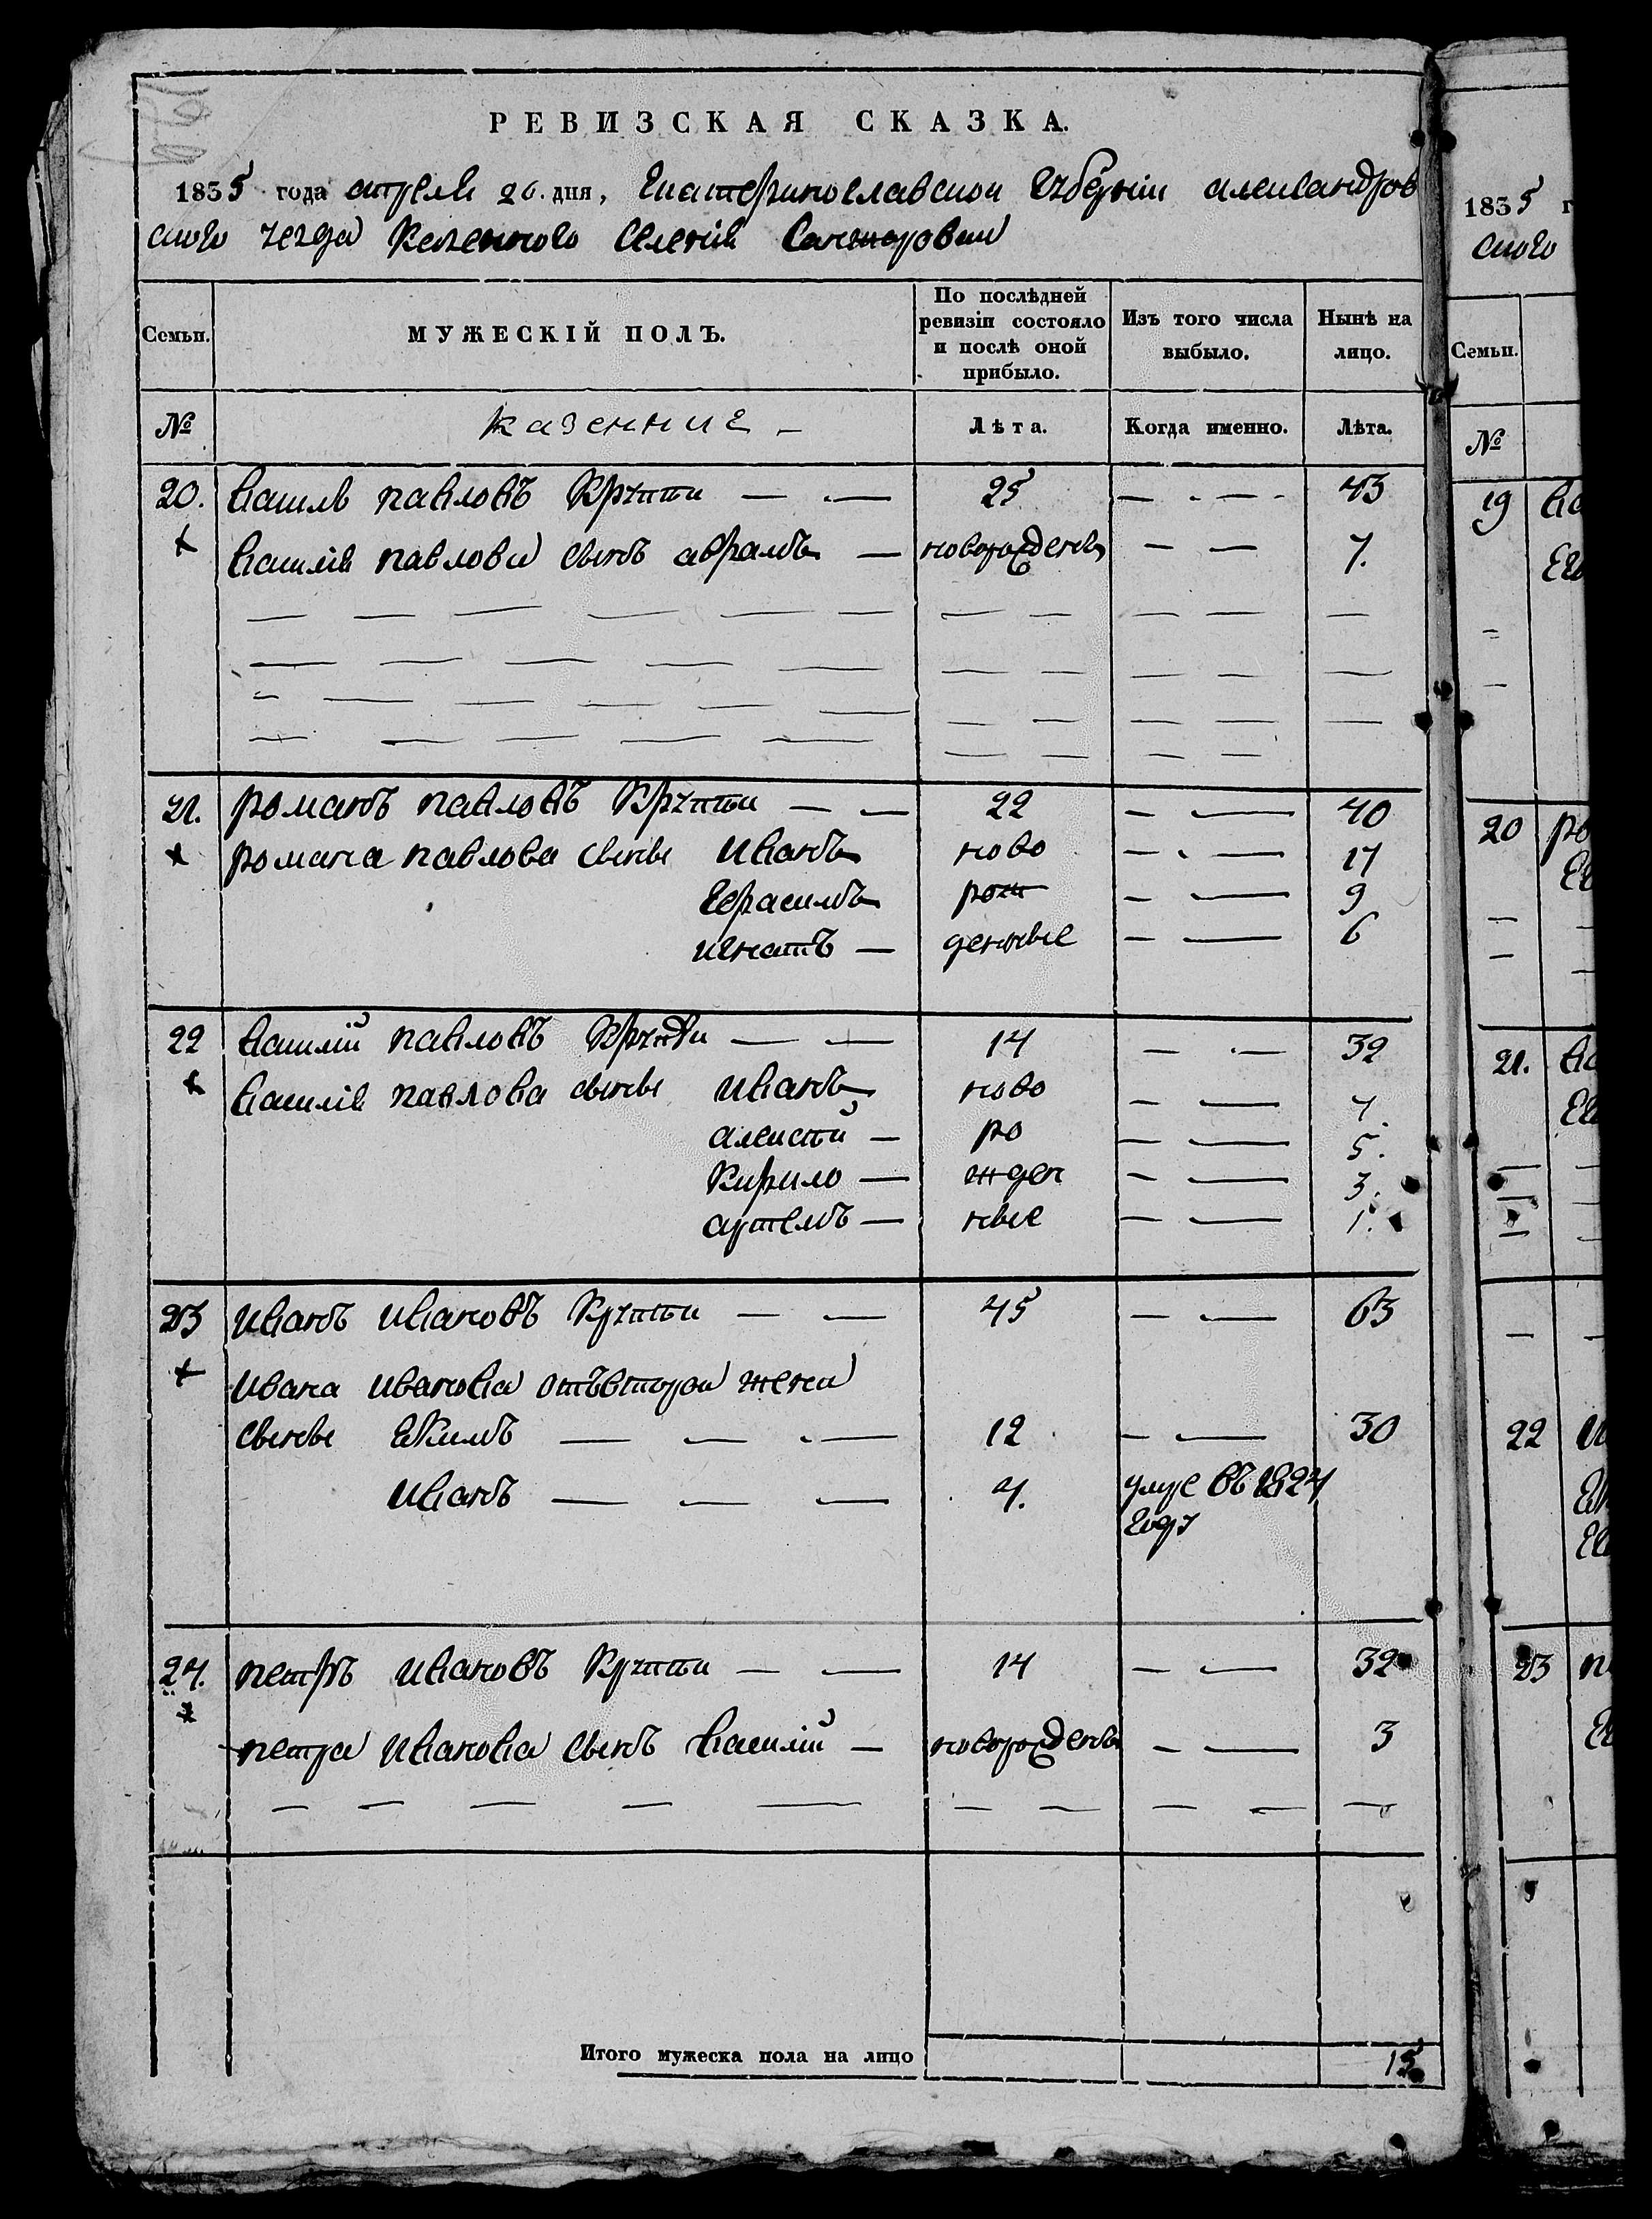 РЕВИЗСКАЯ СКАЗКА.
1835 года апреля 26. дня, Екатеринославской Губернии александров
ского уезда Казенного Селенія
Семьи.
МУЖЕСКІЙ ПОЛЪ.
По послѣдней ревизіи состояло и послѣ оной прибыло.
Изъ того числа выбыло.
Нынѣ на лицо.
№
казенние
Лѣта.
Когда именно.
Лѣта.
20. Василь павловъ — 25 — 43
Василія павлова сынъ аврамъ — новорожденъ — 7.
21. романъ павловъ — 22 — 40
романа павлова сыны Иванъ ново — 17
Герасимъ рож — 9
игнатъ — денные — 6
22 Василій павловъ — 14 — 32
Василія павлова сыны Иванъ ново — 7.
алексей — ро — 5.
Кирило — жден — 3.
артемъ — ные — 1.
23 Иванъ Ивановъ — 45 — 63
Ивана Иванова отъ второй жени
сыны Екимъ — 12 — 30
Иванъ — 7. умре въ 1824
году
24. петръ Ивановъ — 14 — 32
петра Иванова сынъ Василій — новорожденъ — 3
Итого мужеска пола на лицо 15
1835 г
ского
Семьи.
№
19 Ва
Его
20 ро
Ег
21. Ва
Ег
22 И
23 п